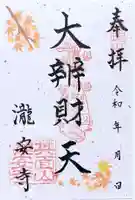 奉拝
令和 年 月 日
大辨財天
瀧安寺